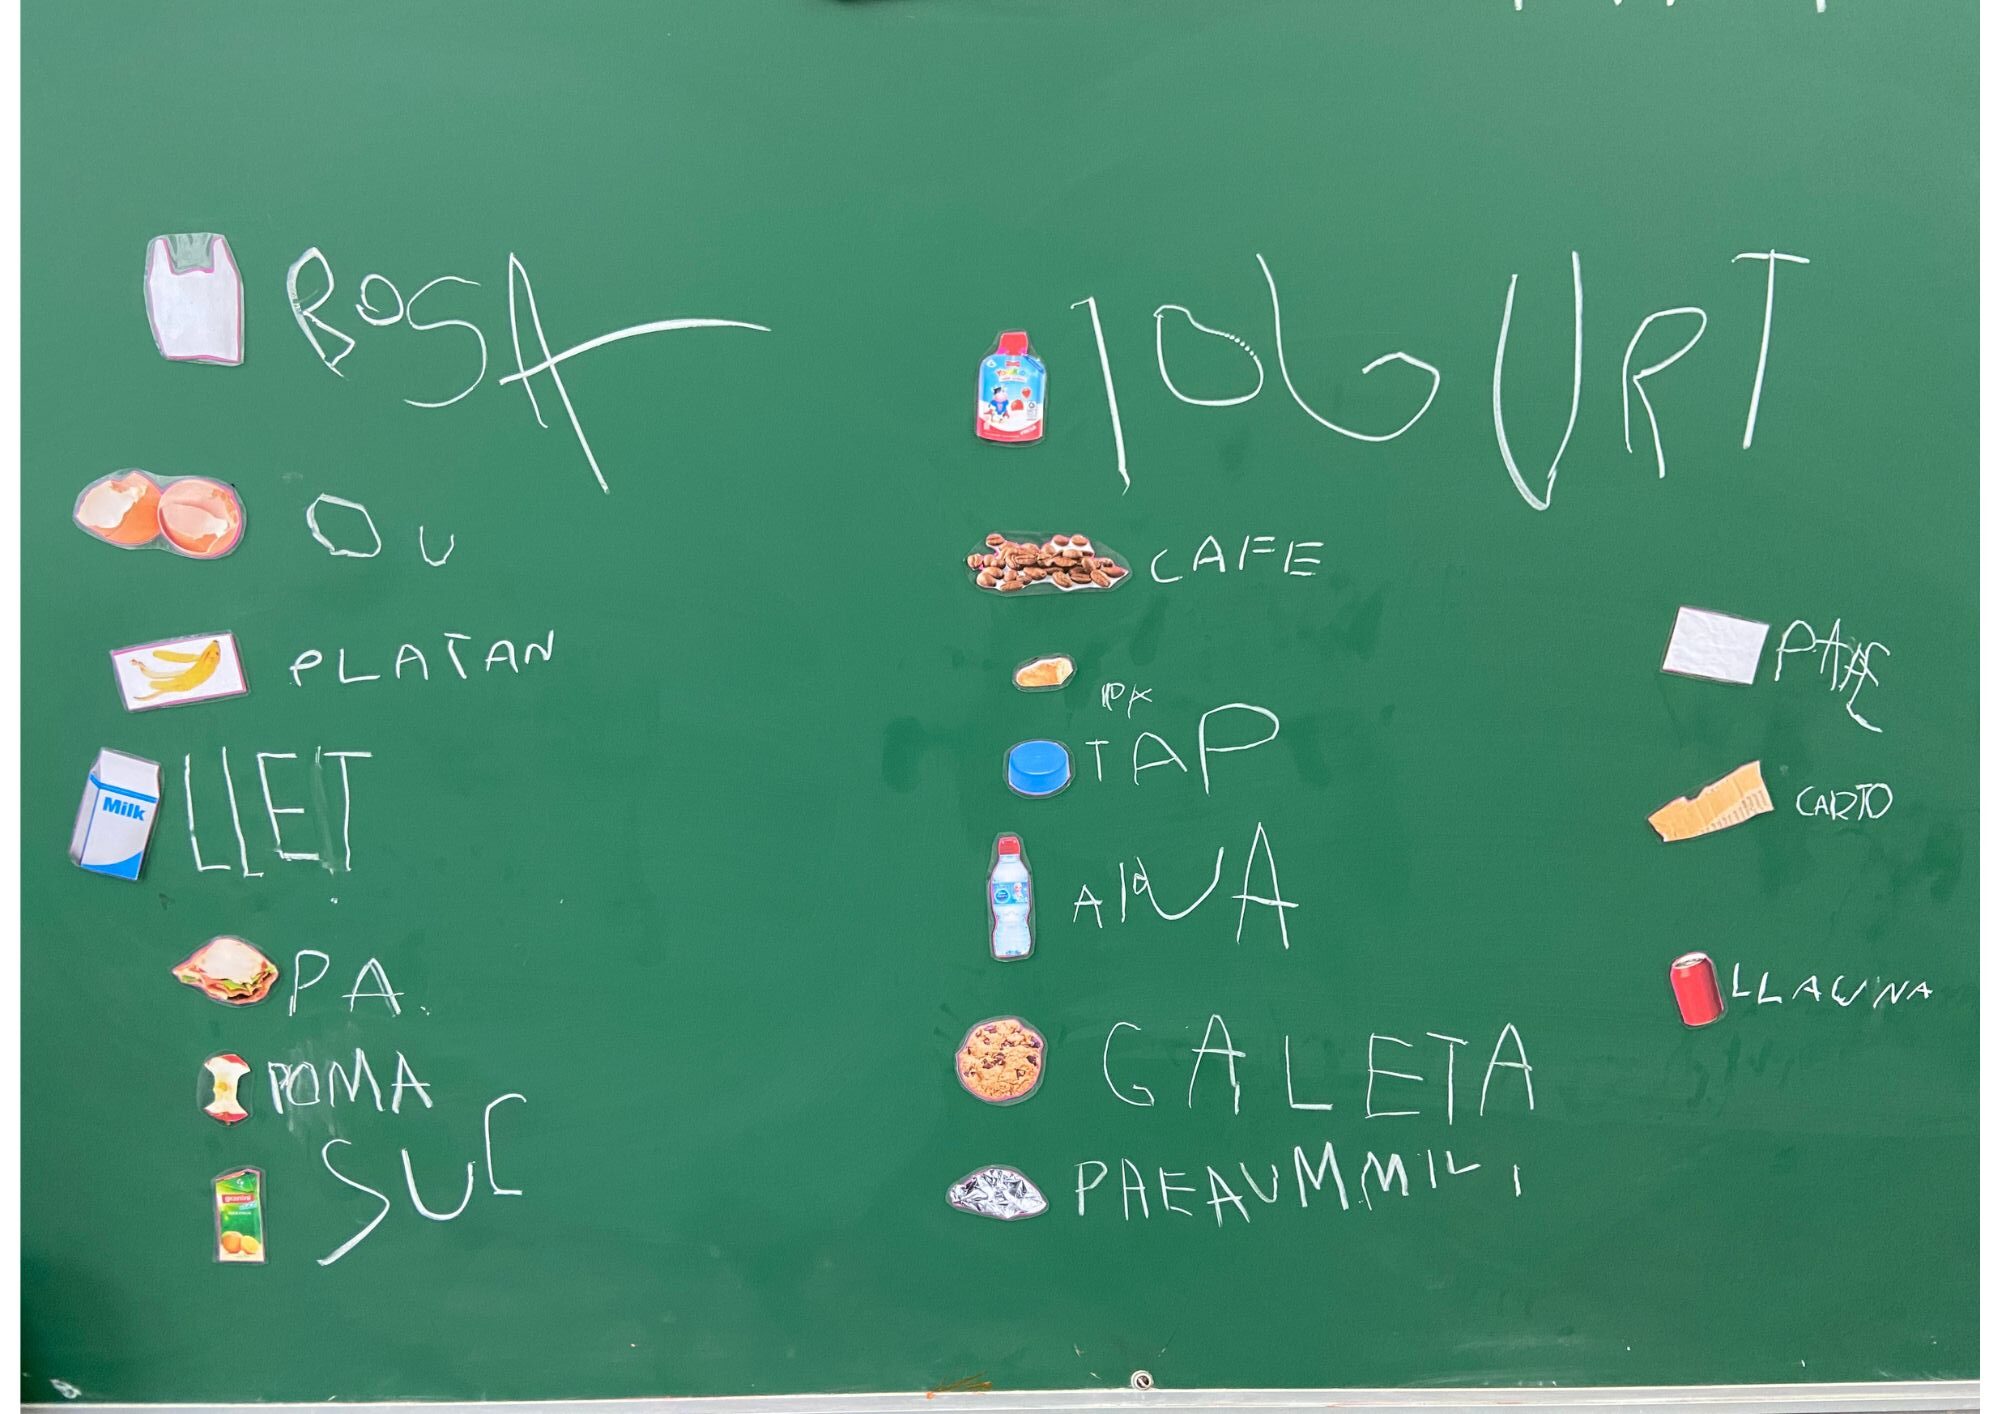 BOSA
OU
PLATAN
LLET
Milk
PA.
POMA
SUC
IOGURT
CAFE
TAP
GALETA
PAEAUMMILI
CARTO
LLAUNA